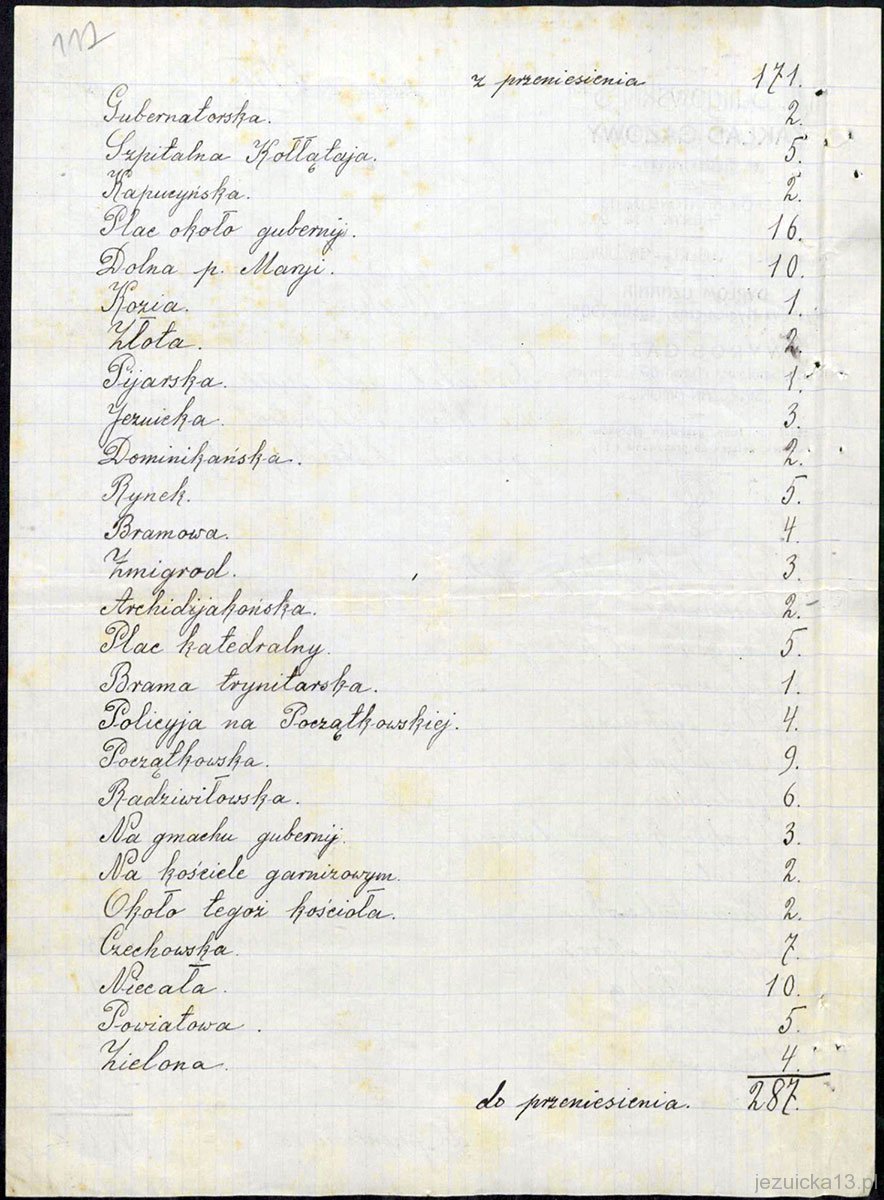 117
z przeniesienia 171.
Gubernatorska. 2.
Szpitalna Kołłątaja. 5.
Kapucyńska. 2.
Plac około gubernij. 16.
Dolna p. Maryi. 10.
Kozia. 1
Złota. 2.
Pijarska. 1.
Jezuicka. 3.
Dominikańska. 2.
Rynek. 5.
Bramowa. 4.
Żmigrod. 3.
Archidijakońska. 2.
Plac katedralny. 5.
Brama trynitarska. 1.
Policyja na Początkowskiej. 4.
Początkowska. 9.
Radziwiłowska. 6.
Na gmachu gubernij. 3.
Na kościele garnizowym. 2.
Około tegoż kościoła. 2.
Czechowska. 7.
Niecała. 10.
Powiatowa. 5.
Zielona. 4.
do przeniesienia. 287.
jezuicka13.pl